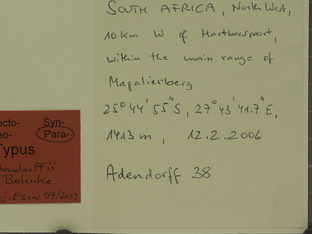 South Africa, North West,
10 km W of Hartbeespoort,
within the main range of
Magaliesberg
25°44'55"S, 27°43'41.7"E,
1413 m, 12.2.2006
Adendorff 38
ecto- Syn-
eo- Para-
Typus
Behnke
07/2013